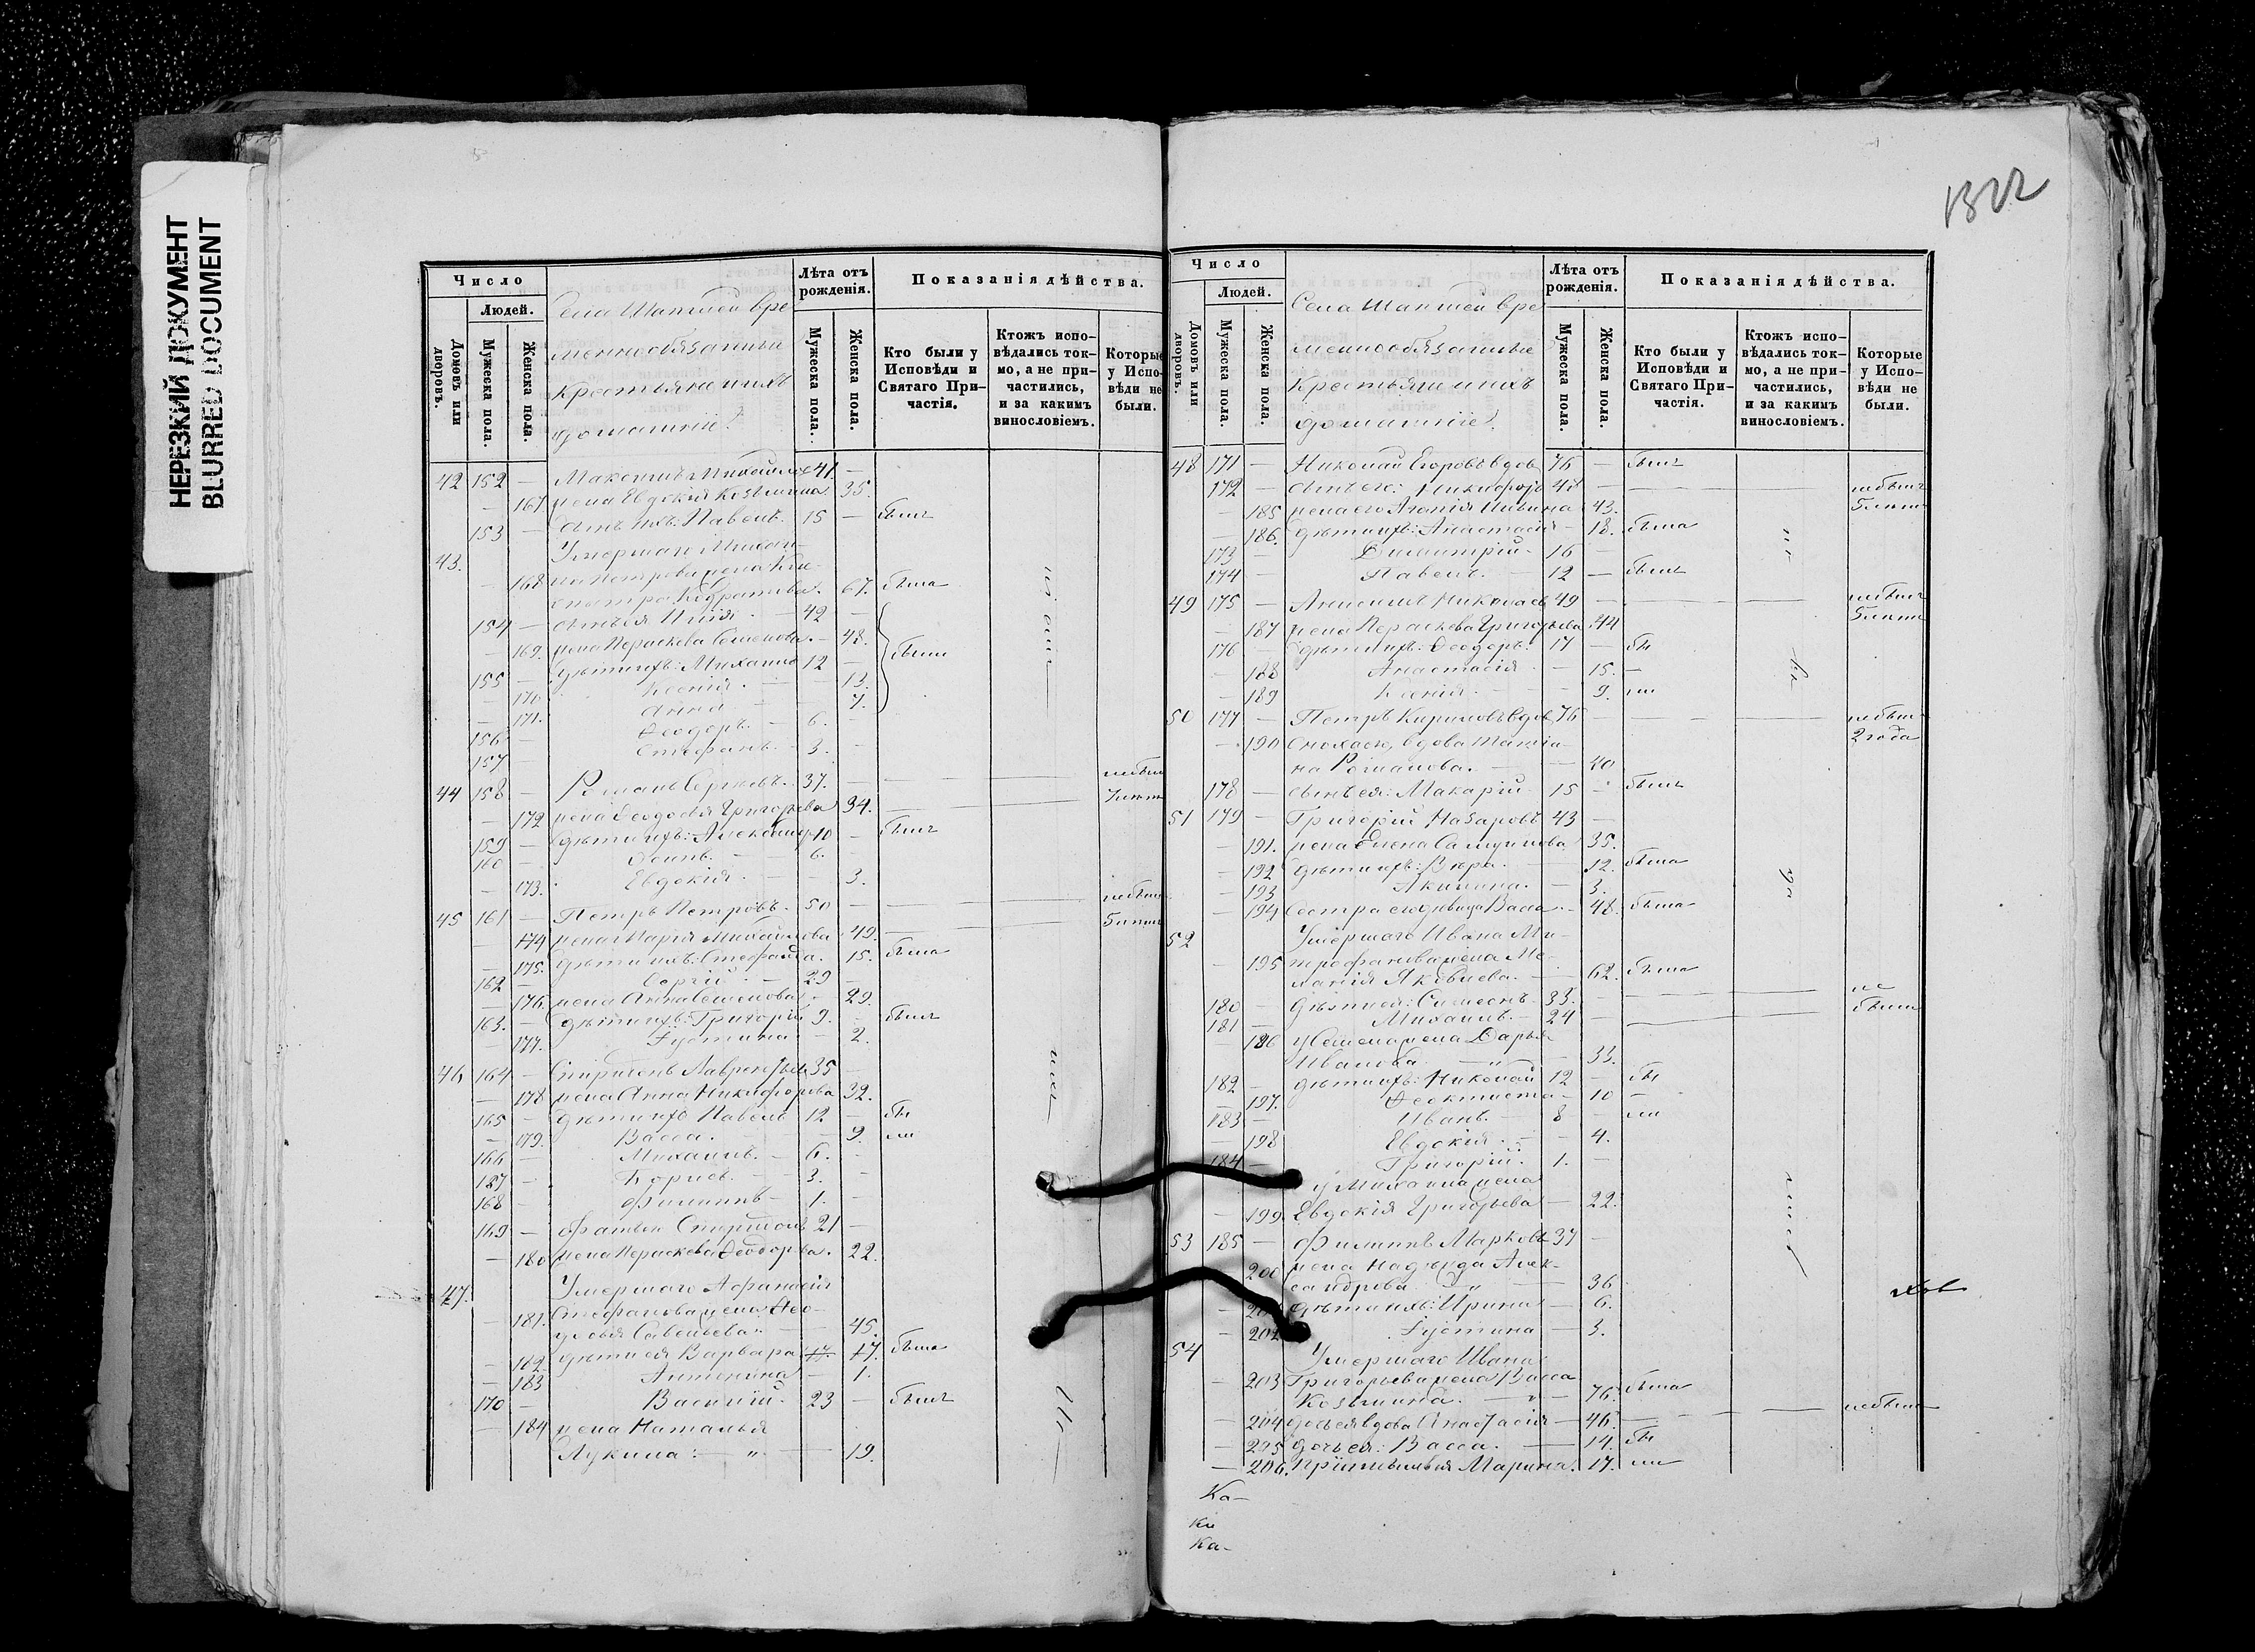 НЕРЕЗКИЙ ДОКУМЕНТ
BLURRED DOCUMENT
Число
Людей.
Домовъ или дворовъ.
Мужеска пола.
Женска пола.
Села Шаптшеи вре
меннообязанные
крестьяне и ихъ
домашніе:
Лѣта отъ рожденія.
Мужеска пола.
Женска пола.
Показанія дѣйства.
Кто были у Исповѣди и Святаго При-
частія.
Ктожъ испо-
вѣдались ток-
мо, а не при-
частились,
и за какимъ
винословіемъ.
Которые
у Испо-
вѣди не
были.
42 152 — Максимъ Михайлов 41. —
— 167 жена Евдокія Козьмина 35.
153 — сынъ ихъ: Павелъ. 15 — былъ
43. Умершаго Михаи-
— 168 ла Петрова жена Кле-
опатра Кодратова. 67. была
154 — сынъ ея Илія. — 42 —
— 169. жена Параскева Семенова. — 48.
155 — дѣти ихъ: Михаилъ 12 — были
— 170 Ксенія. — 13.
— 171. Анна — 7.
156 — Ѳеодоръ. — 6. —
157 — Стефанъ. — 3. —
44 158 — Романъ Сергѣевъ. 37. — небыл
— 172 жена Ѳеодосья Григорьева 34. 7 лѣтъ
159 — дѣти ихъ: Александръ 10 — былъ
160 — Осипъ. — 6. —
— 173. Евдокія. — 3.
45 161 — Петръ Петровъ. 50 — небыли
— 174 жена Марія Михайлова 49. 5 лѣтъ
— 175. дѣти ихъ: Стефанида. 15. была
162 — Сергій. — 29 —
— 176. жена Анна Семенова — 29.
163. — дѣти ихъ: Григорій 9. — былъ
— 177. Іустина — 2.
46 164 — Спиридонъ Лаврентьев 35 —
— 178 жена Анна Никифорова 32.
165 — дѣти ихъ Павелъ 12 — бы
— 179. Васса. — 9. ли
166 — Михаилъ. — 6. —
167 — Борисъ. — 3. —
168 — Филиппъ — 1. —
169 — Фатьян Спиридон 21 —
— 180 жена Параскева Ѳеодорова. 22.
47. Умершаго Афанасія
— 181. Стефанова жена Ѳео-
досья Савельева. — 45.
— 182 дѣти ея Варвара 17. 17. была
— 183 Антонина — 1.
170 — Василій. 23 — былъ
— 184 жена Наталья
Лукина: — „ — 19.
1322
Число
Людей.
Домовъ или дворовъ.
Мужеска пола.
Женска пола.
Села Шаптшеи вре
меннообязанные
Крестьяне и ихъ
домашніе:
Лѣта отъ рожденія.
Мужеска пола.
Женска пола.
Показанія дѣйства.
Кто были у
Исповѣди и
Святаго При-
частія.
Ктожъ испо-
вѣдались ток-
мо, а не при-
частились,
и за какимъ
винословіемъ.
Которые
у Испо-
вѣди не
были.
48 171 — Николай Егоровъ вдов 76 — былъ
172 — сынъ его: Никифоръ 48 — небылъ
— 185 жена его Агафія Ильина 43. 5 лѣтъ
— 186. дѣти ихъ: Анастасія — 18. была
173 — Димитрій — 16 —
174 — Павелъ. — 12 — былъ
49 175 — Анисимъ Николаев 49 — небылъ
— 187 жена Параскева Григорьева 44 5 лѣтъ
176 — дѣти ихъ: Ѳеодоръ. 17 — бы
— 188 Анастасія — 15. —
— 189 Ксенія. — 9. ли
50 177 — Петръ Кириловъ вдов 76 — небыл
— 190 Сноха его, вдова Татіа- 2 года
на Романова. — 40
178 — сынъ ея: Макарій 15 — былъ
51 179 — Григорій Назаровъ 43 —
— 191. жена Елена Самуилова 35.
— 192 дѣти ихъ: Вѣра. — 12. была
— 193 Акилина. — 3.
— 194 Сестра его дѣвица Васса. — 48. была
52 Умершаго Ивана Ми-
— 195 трофанова жена Ме-
ланія Яковлева. — 62. была
180 — дѣти ея: Симеонъ. 33. — не
181 — Михаилъ. — 24 — были
— 196 у Семена жена Дарья
Иванова — „ — 33.
182 — дѣти ихъ: Николай 12 — бы
— 197. Ѳеоктиста — 10 —
183 — Иванъ. — 8 — ли
— 198 Евдокія. — 4.
184 — Григорій. 1. —
у Михаила жена
— 199 Евдокія Григорьева — 22.
53 185 — Филиппъ Марковъ 37 —
200 жена Надежда Алек-
сандрова — „ — 36
— 201 дѣти ихъ: Ирина — 6.
— 202 Іустина — 3.
54 Умершаго Ивана
— 203 Григорьева жена Васса
Козьмина. — „ — 76. была
— 204 дочь ея вдова Анастасія — 46. — небыла
— 205 дочь ея: Васса. — 14. бы
— 206. Марина. 17. ли
Ка-
ки
ка-